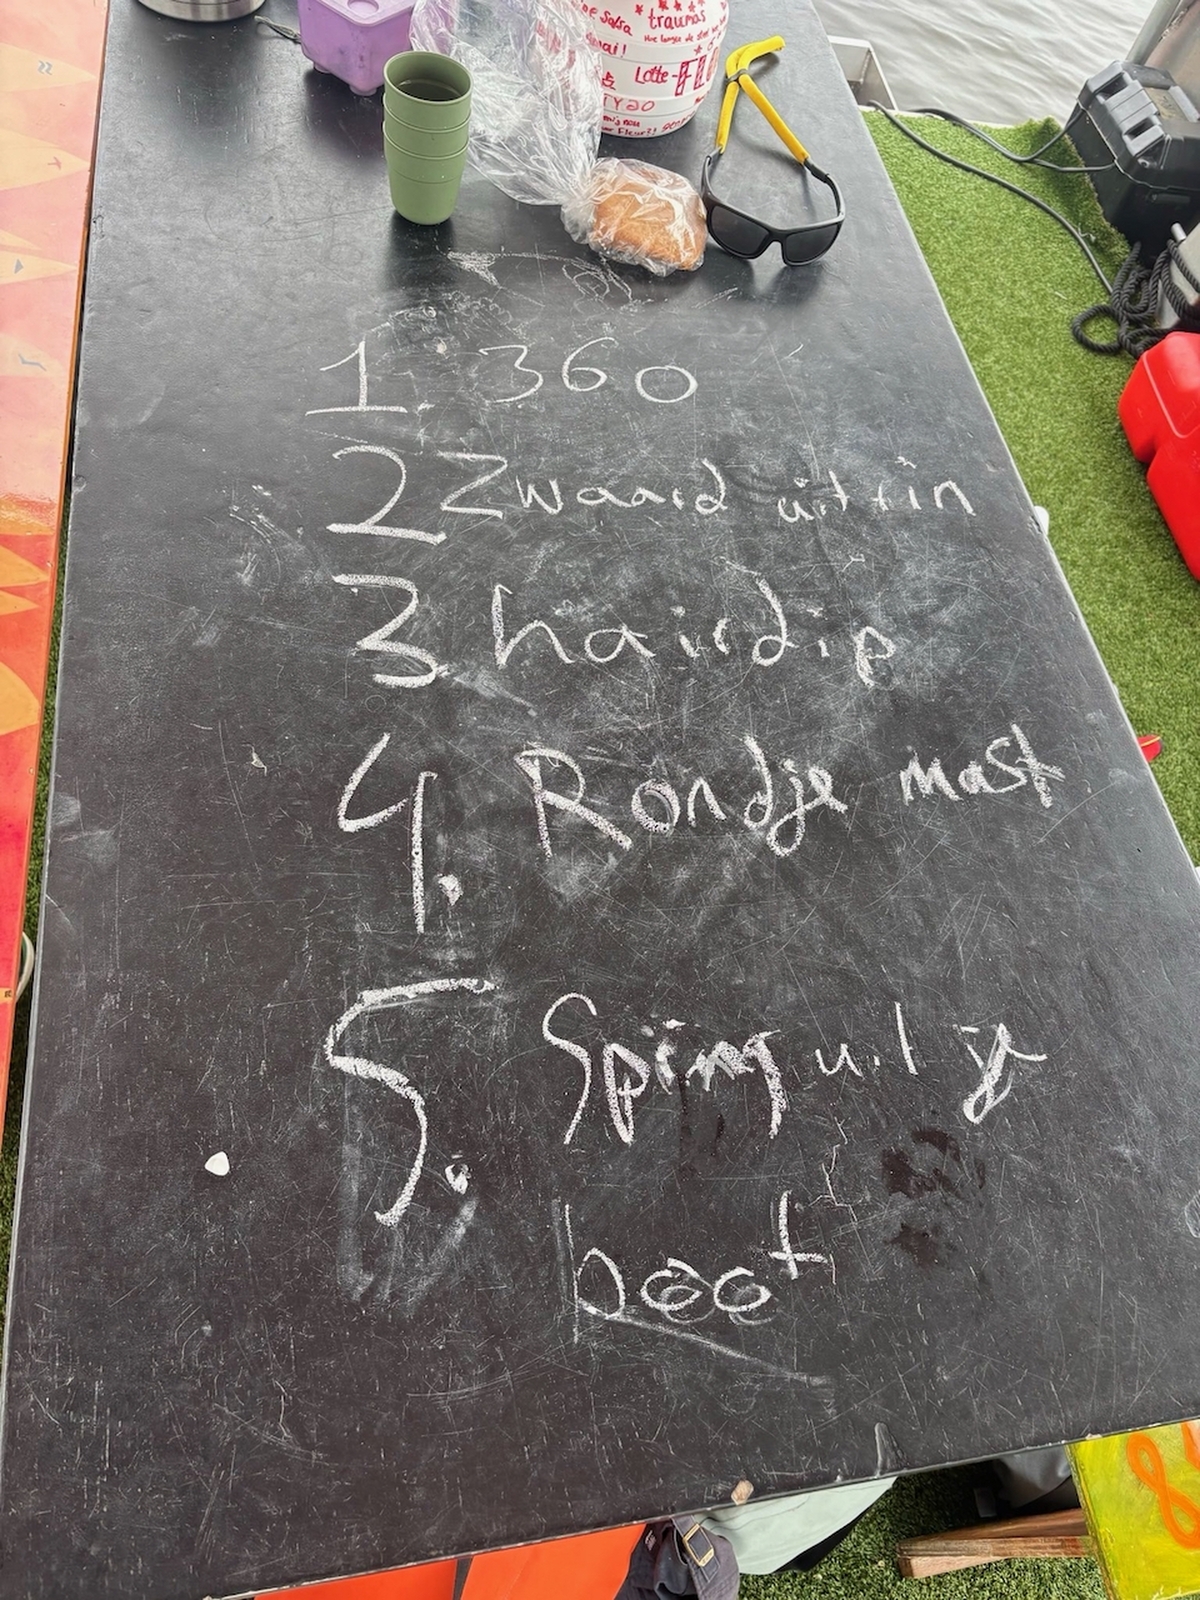 Salsa
traumas
Lotte
TY20
1. 360
2 Zwaard uit + in
3 hairdip
4. Rondje mast
5. Spring uit je
boot